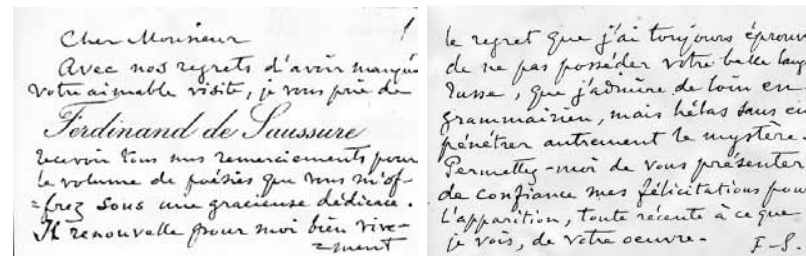 Cher Monsieur
Avec nos regrets d'avoir manqué
votre aimable visite, je vous prie de
Ferdinand de Saussure
recevoir tous mes remerciements pour
le volume de poésies que vous m'of-
=frez sous une gracieuse dédicace.
Il renouvelle pour moi bien vive-
=ment
le regret que j'ai toujours éprouv
de ne pas posséder votre belle lang
russe, que j'admire de loin en
grammairien, mais hélas sans en
pénétrer autrement le mystère.
Permettez-moi de vous présenter
de confiance mes félicitations pour
l'apparition, toute récente à ce que
je vois, de votre oeuvre.
F-S.